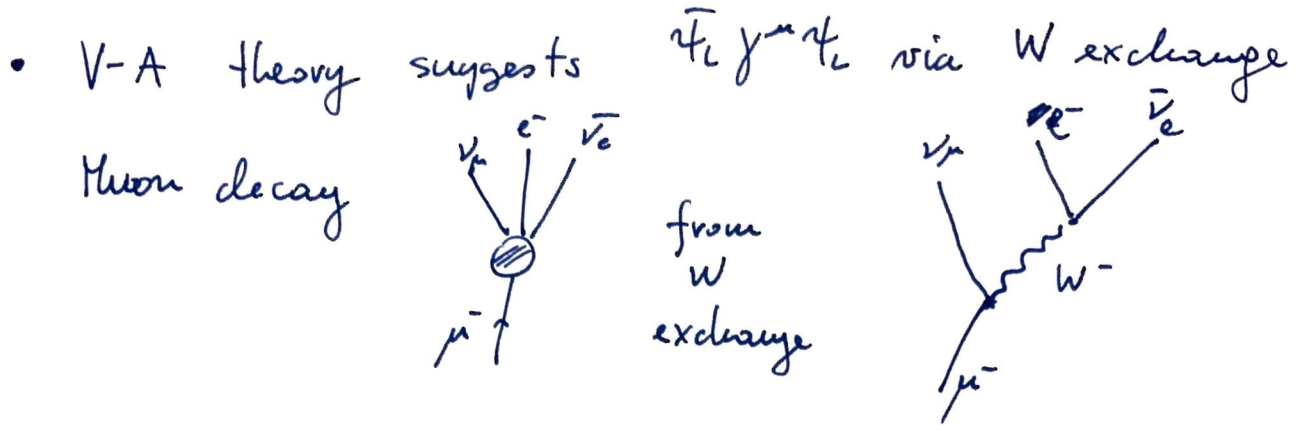 • V-A theory suggests ψ̄_L γ^μ ψ_L via W exchange
Muon decay
ν_μ e⁻ ν̄_e
μ⁻
from
W
exchange
ν_μ e⁻ ν̄_e
W⁻
μ⁻